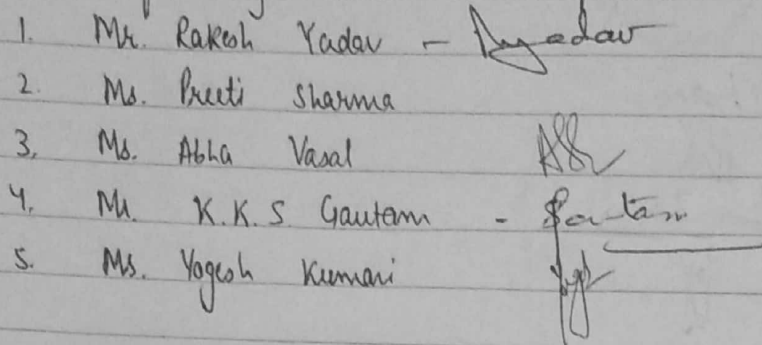 1. Mr. Rakesh Yadav - Ryadav
2. Ms. Preeti Sharma
3. Ms. Abha Vasal
4. Mr. K.K.S. Gautam - Gautam
5. Ms. Yogesh Kumari